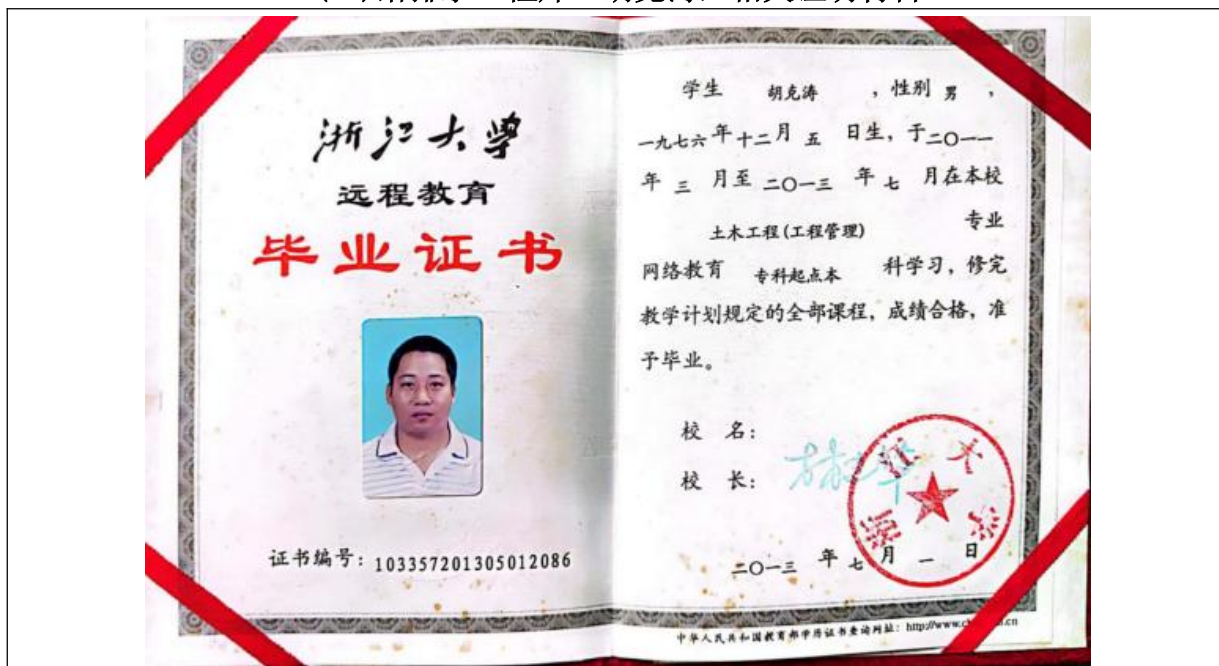 浙江大学
远程教育
毕业证书
证书编号：103357201305012086
学生 胡克涛 ，性别 男 ，
一九七六 年 十二 月 五 日生，于 二〇一一
年 三 月至 二〇一三 年 七 月在本校
土木工程(工程管理) 专业
网络教育 专科起点本 科学习，修完
教学计划规定的全部课程，成绩合格，准
予毕业。
校 名：
校 长：
浙江大学
二〇一三 年 七 月 一 日
中华人民共和国教育部学历证书查询网址：http://www.